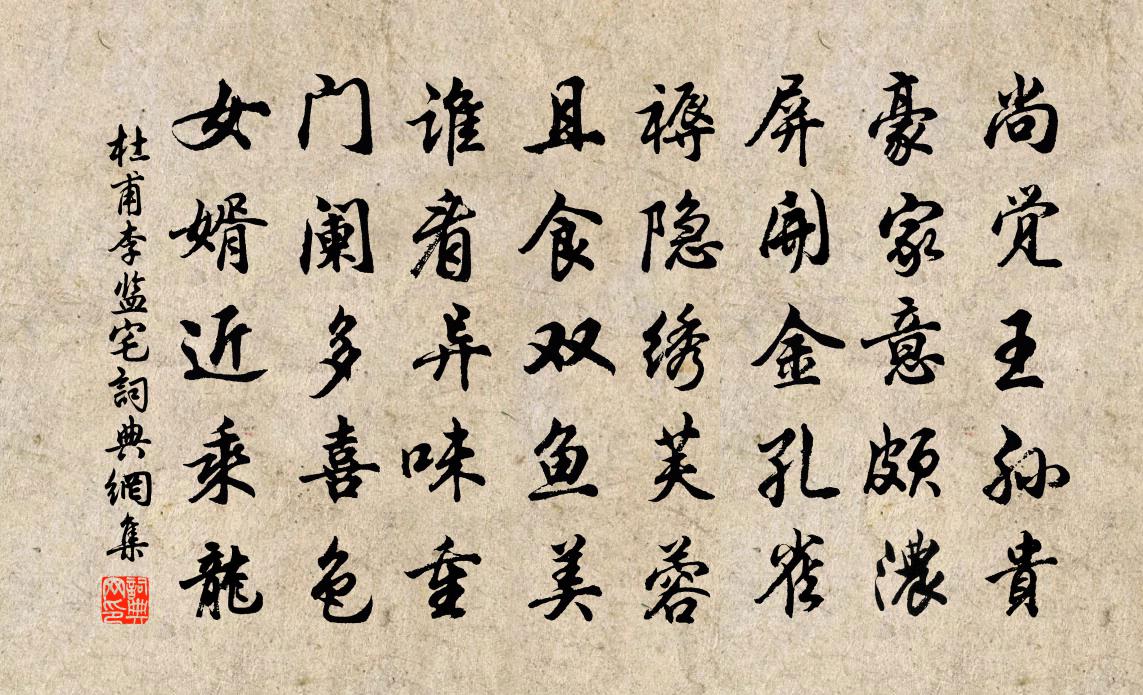 尚觉王孙貴
豪家意颇濃
屏開金孔雀
褥隐绣芙蓉
且食双鱼美
谁看异味重
门阑多喜色
女婿近乘龍
杜甫李监宅詞典網集
詞典网印